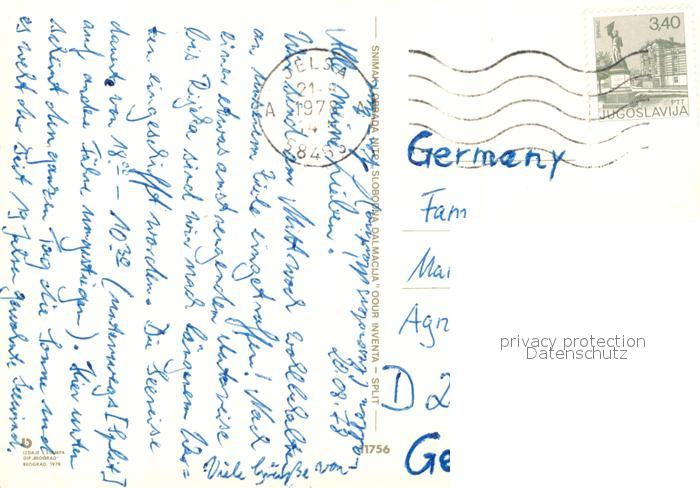 3,40
PTT
JUGOSLAVIJA
JELSA
21-
1978
A
58465
Germany
Fam
Mai
Agn
D 2
Ge
privacy protection
Datenschutz
SNIMAK I OBRADA NITRA SLOBODNA DALMACIJA" OOUR INVENTA – SPLIT
11756
20.08.78
Alle meine Lieben!
Wir sind am Mittwoch wohlbehalten
an unserem Ziele eingetroffen! Nach
einer etwas anstrengenden Autoreise
bis Rijeka sind wir nach längerem War=
ten eingeschifft worden. Die Seereise
dauerte von 18.00 – 10.30 (unterwegs [Split]
auf andere Fähre umgestiegen). Hier unten
scheint den ganzen Tag die Sonne und
es weht der seit Jahren gewohnte Seewind.
Viele Grüße von
IZDAJE I ŠTAMPA
GIP „BEOGRAD"
BEOGRAD, 1978